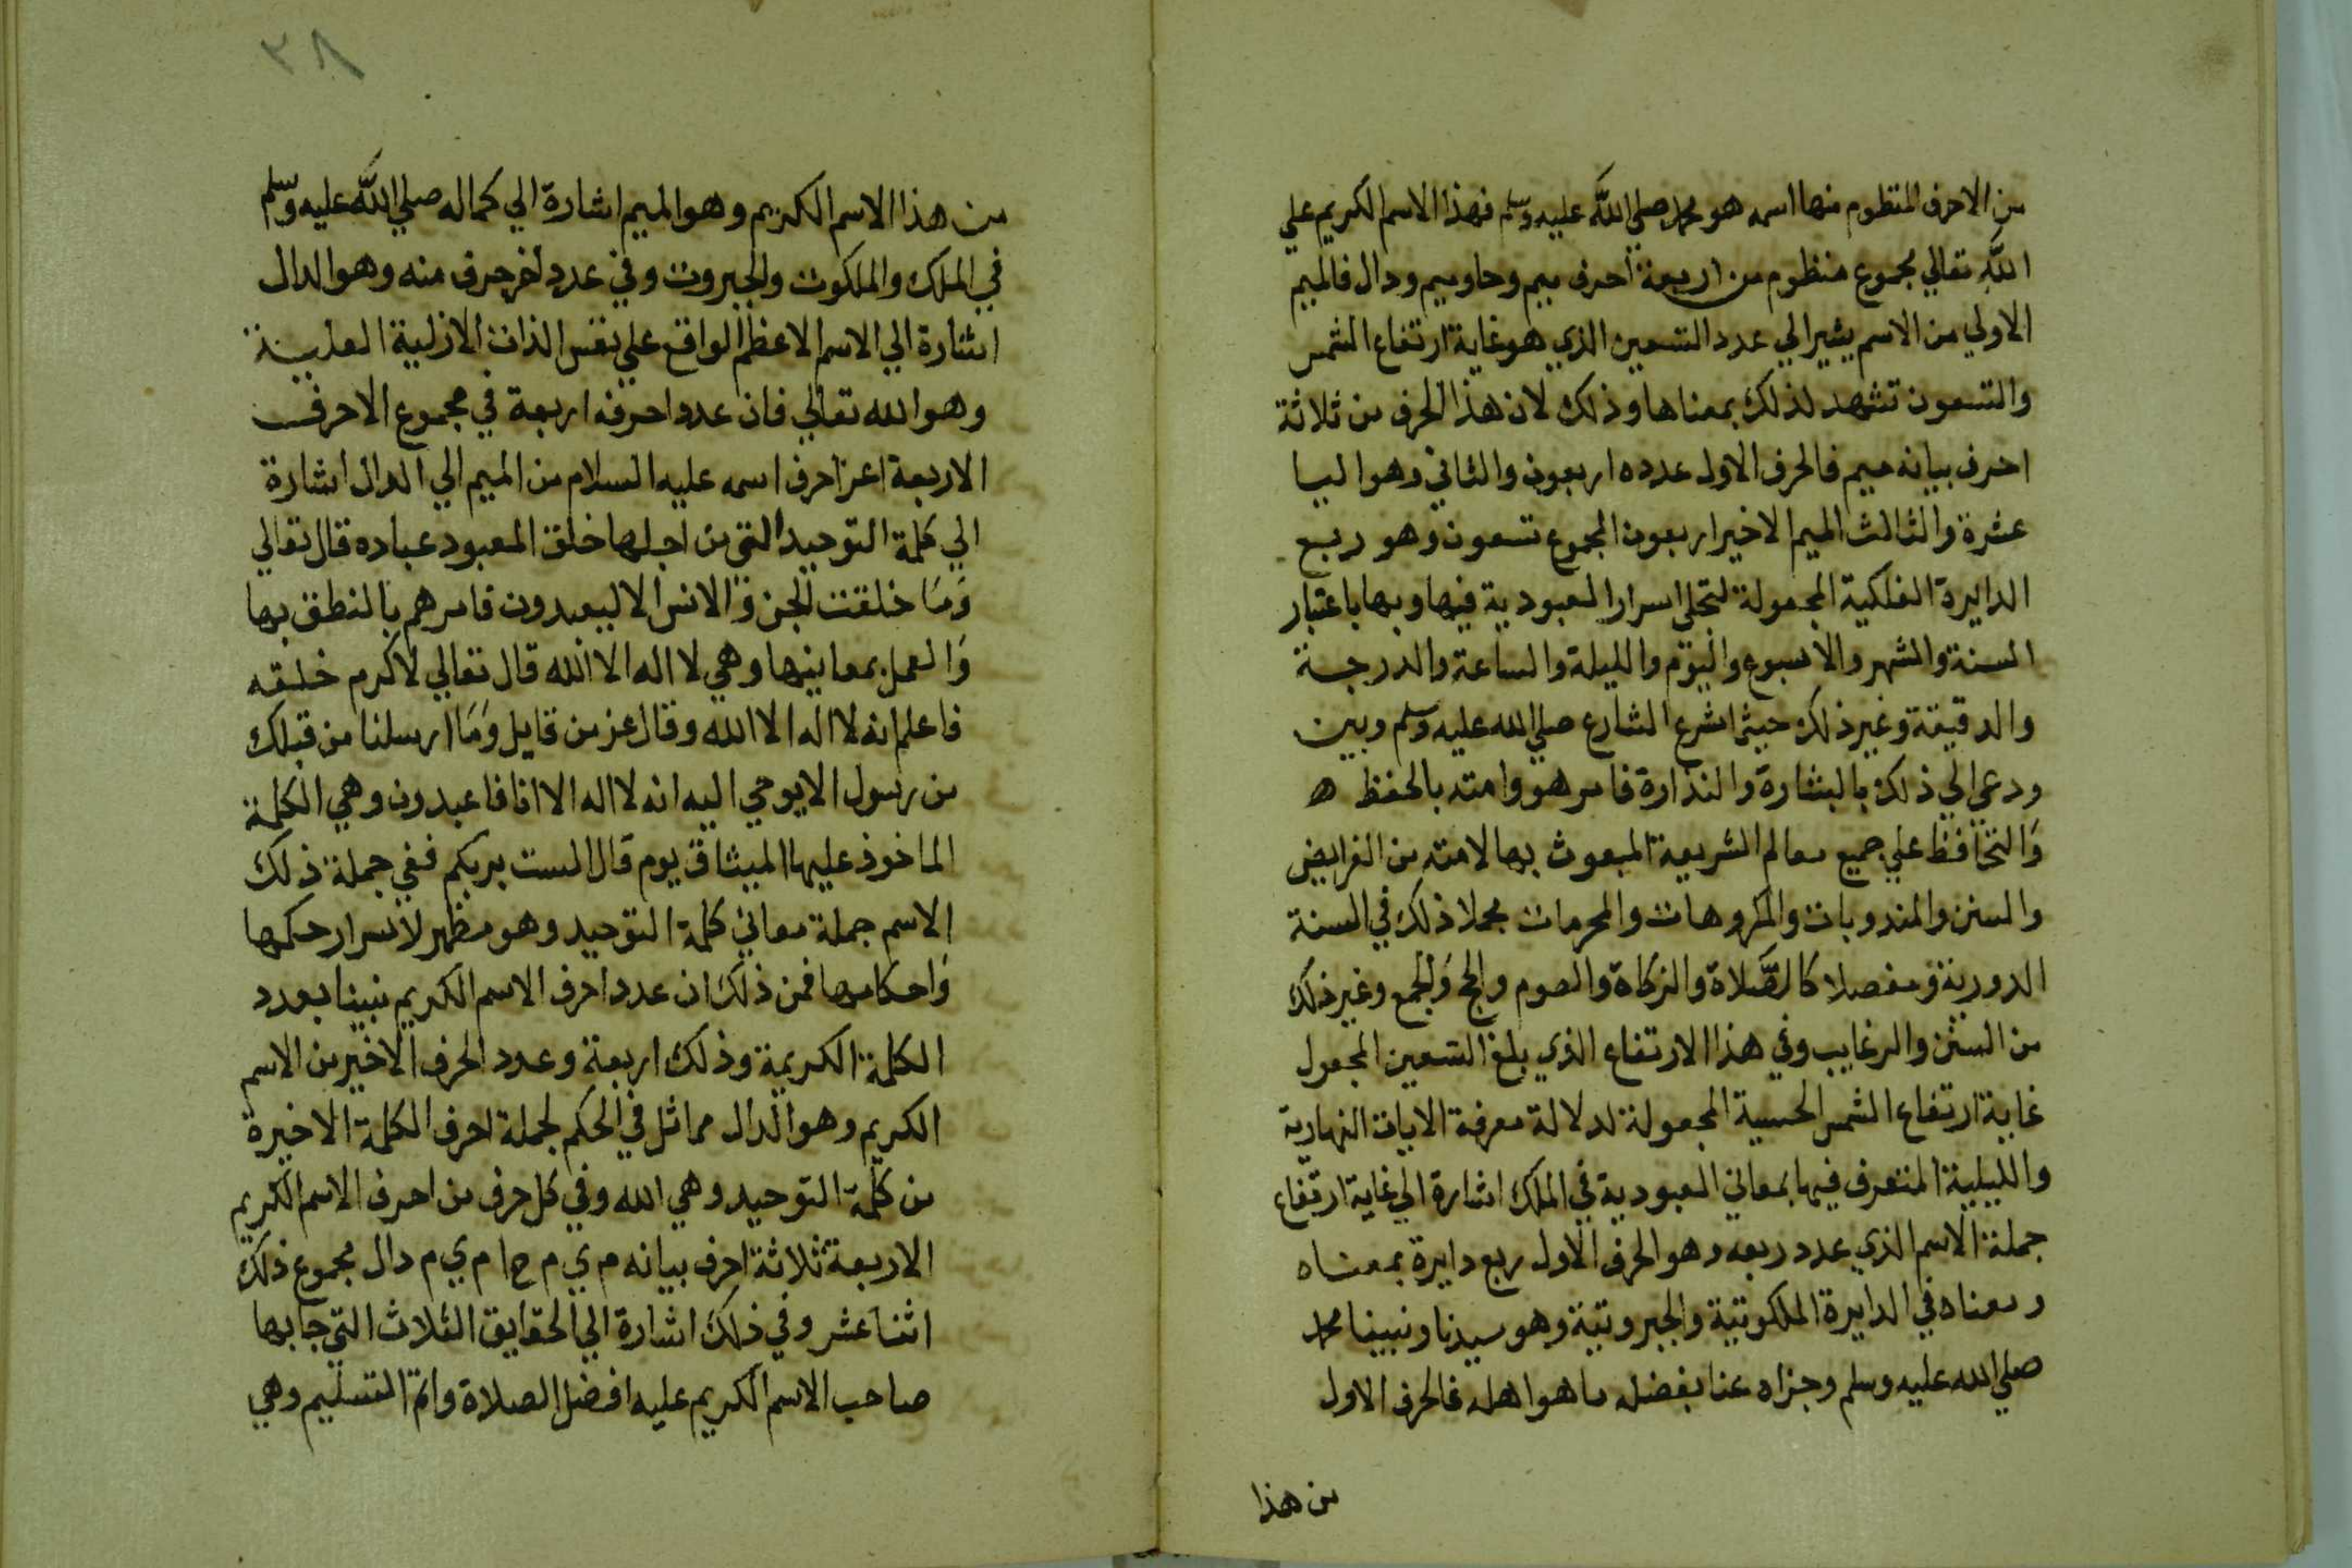 من الاحرف المنظوم منها اسمه هو محمد صلي الله عليه وسلم فهذا الاسم الكريم علي
الله تعالي مجموع منظوم من اربعة احرف ميم وحا وميم ودال فالميم
الاولي من الاسم يشير الي عدد التسعين الذي هو غاية ارتفاع الشمس
والتسعون تشهد لذلك بمعناها وذلك لان هذا الحرف من ثلاثة
احرف بيانه ميم فالحرف الاول عدده اربعون والثاني وهو اليا
عشرة والثالث الميم الاخير اربعون المجموع تسعون وهو ربع
الدايرة الفلكية المجعولة لتجلي اسرار العبودية فيها وبها باعتبار
السنة والشهر والاسبوع واليوم والليلة والساعة والدرجة
والدقيقة وغير ذلك حيث اشرع الشارع صلي الله عليه وسلم وبين
ودعي الي ذلك بالبشارة والنذارة فامر هو وامته بالحفظ ه
والتحافظ علي جميع معالم الشريعة المبعوث بها لامته من الفرايض
والسنن والمندوبات والمكروهات والمحرمات مجملا ذلك في السنة
الدورية ومفصلا كالصلاة والزكاة والصوم والحج والجمع وغير ذلك
من السنن والرغايب وفي هذا الارتفاع الذي بلغ التسعين المجعول
غاية ارتفاع الشمس الحسية المجعولة لدلالة معرفة الايات النهارية
والليلية المتعرف فيها بمعاني العبودية في الملك اشارة الي غاية ارتفاع
جملة الاسم الذي عدد ربعه وهو الحرف الاول ربع دايرة بمعناه
ومعناه في الدايرة الملكوتية والجبروتية وهو سيدنا ونبينا محمد
صلي الله عليه وسلم وجزاه عنا بفضله ما هو اهله فالحرف الاول
من هذا
٣٨
من هذا الاسم الكريم وهو الميم اشارة الي كماله صلي الله عليه وسلم
في الملك والملكوت والجبروت وفي عدد اخر حرف منه وهو الدال
اشارة الي الاسم الاعظم الواقع علي نفس الذات الازلية العلية
وهو الله تعالي فان عدد احرفه اربعة في مجموع الاحرف
الاربعة اعز احرف اسمه عليه السلام من الميم الي الدال اشارة
الي كلمة التوحيد التي من اجلها خلق المعبود عباده قال تعالي
وَمَا خلقت الجن والانس الا ليعبدون فامرهم بالنطق بها
وَالعمل بمعانيها وهي لا اله الا الله قال تعالي لاكرم خلقه
فاعلم انه لا اله الا الله وقال عز من قايل وَمَا ارسلنا من قبلك
من رسول الا يوحي اليه انه لا اله الا انا فاعبدون وهي الكلمة
الماخوذ عليها الميثاق يوم قال الست بربكم ففي جملة ذلك
الاسم جملة معاني كلمة التوحيد وهو مظهر لاسرار حكمها
وَاحكامها فمن ذلك ان عدد احرف الاسم الكريم نبينا بعدد
الكلمة الكريمة وذلك اربعة وعدد الحرف الاخير من الاسم
الكريم وهو الدال مماثل في الحكم لجملة احرف الكلمة الاخيرة
من كلمة التوحيد وهي الله وفي كل حرف من احرف الاسم الكريم
الاربعة ثلاثة احرف بيانه م ي م ح ا م ي م دال مجموع ذلك
اثنا عشر وفي ذلك اشارة الي الحقايق الثلاث التي جا بها
صاحب الاسم الكريم عليه افضل الصلاة واتم التسليم وهي